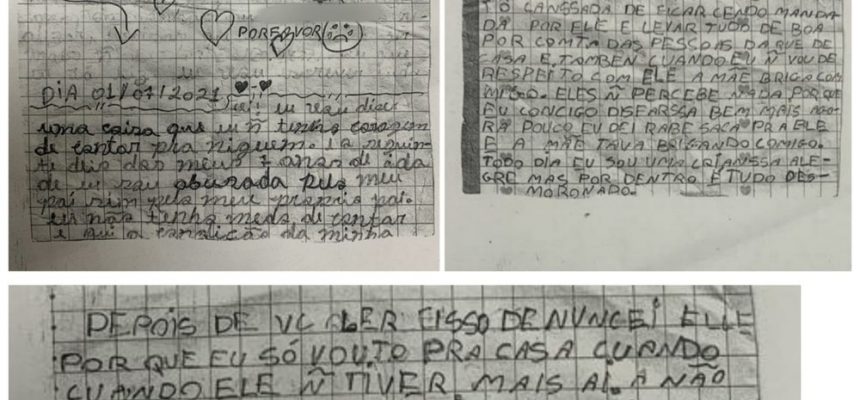 PORFAVOR
DIA 01/07/2021
eu vou dizer
uma coisa que eu ñ tenho coragem
de contar pra niguem. é a siguin-
te deis dos meus 7 anos de ida
de eu vou abuzada pelo meu
pai sim pelo meu proprio pai.
eu não tenho medo de contar
é qui o coralção da minha
TÔ CANSSADA DE FICAR CENDO MANDA
DA POR ELE E LEVAR TUDO DE BOA
POR COMTA DAS PESSOIS DAQUE DE
CASA E TAMBEN CUANDO EU Ñ VOU DE
RESPEITO COM ELE A MÃE BRIGA COM
MIGO. ELES Ñ PERCEBE NADA POR QUE
EU CONCIGO DISFARSSA BEM MAIS AGO
RA POUCO EU DEI RABE SACA PRA ELE
E A MÃE TAVA BRIGANDO COMIGO.
TODO DIA EU SOU UMA CRIANSSA ALE-
GRE MAS POR DENTRO É TUDO DES-
MORONADO.
DEPOIS DE VC LER EISSO DENUNCEI ELLE
POR QUE EU SÓ VOUTO PRA CASA CUANDO
CUANDO ELE Ñ TIVER MAIS AI. A NÃO